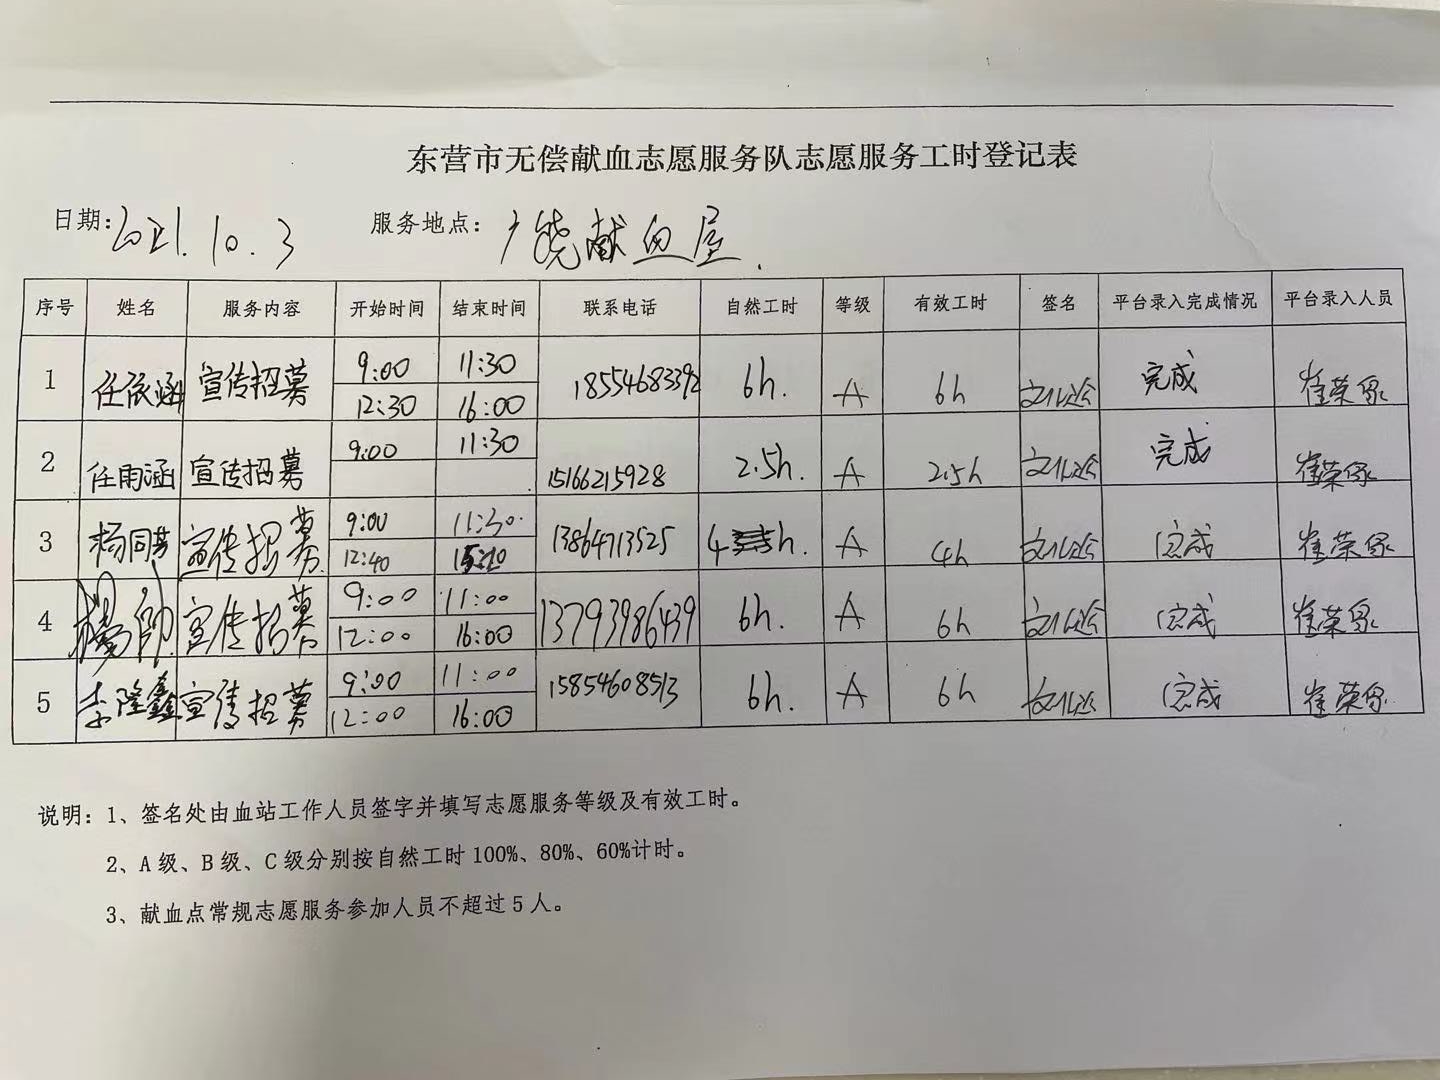 东营市无偿献血志愿服务队志愿服务工时登记表
日期:2021.10.3 服务地点:广饶献血屋.
序号 姓名 服务内容 开始时间 结束时间 联系电话 自然工时 等级 有效工时 签名 平台录入完成情况 平台录入人员
1 任依涵 宣传招募 9:00 11:30 18554683392 6h. A 6h 完成 崔荣
12:30 16:00
2 任雨涵 宣传招募 9:00 11:30 15166215928 2.5h. A 2.5h 完成 崔荣
3 杨同芳 宣传招募 9:00 11:30 13864713525 4 h. A 4h 完成 崔荣
12:40 15:10
4 杨帅 宣传招募 9:00 11:00 13793986439 6h. A 6h 完成 崔荣
12:00 16:00
5 李隆鑫 宣传招募 9:00 11:00 15854608513 6h. A 6h 完成 崔荣
12:00 16:00
说明:1、签名处由血站工作人员签字并填写志愿服务等级及有效工时。
2、A级、B级、C级分别按自然工时100%、80%、60%计时。
3、献血点常规志愿服务参加人员不超过5人。